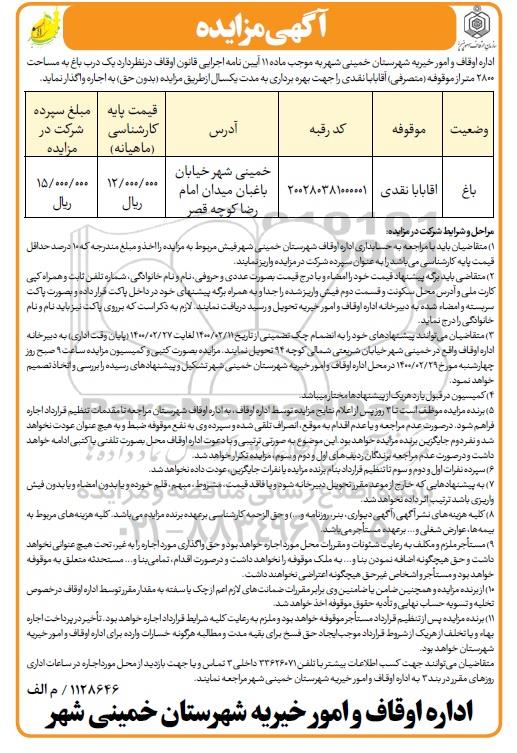 آگهی مزایده
اداره اوقاف و امور خیریه شهرستان خمینی شهر به موجب ماده ۱۱ آیین نامه اجرایی قانون اوقاف در نظر دارد یک درب باغ به مساحت
۲۸۰۰ متر از موقوفه (متصرفی) آقابابا نقدی را جهت بهره برداری به مدت یکسال از طریق مزایده (بدون حق) به اجاره واگذار نماید.
وضعیت موقوفه کد رقبه آدرس قیمت پایه کارشناسی (ماهیانه) مبلغ سپرده شرکت در مزایده
باغ اقابابا نقدی ۲۰۰۲۸۰۳۸۱۰۰۰۰۰۱ خمینی شهر خیابان باغبان میدان امام رضا کوچه قصر ۱۲/۰۰۰/۰۰۰ ریال ۱۵/۰۰۰/۰۰۰ ریال
مراحل و شرایط شرکت در مزایده:
۱) متقاضیان باید با مراجعه به حسابداری اداره اوقاف شهرستان خمینی شهر فیش مربوط به مزایده را اخذ و مبلغ مندرجه که ۱۰ درصد حداقل
قیمت پایه کارشناسی می باشد را به عنوان سپرده شرکت در مزایده واریز نمایند.
۲) متقاضی باید برگه پیشنهاد قیمت خود را امضاء و با درج قیمت بصورت عددی و حروفی، نام و نام خانوادگی، شماره تلفن ثابت و همراه کپی
کارت ملی و آدرس محل سکونت و قسمت دوم فیش واریز شده را جدا و به همراه برگه پیشنهای خود در داخل پاکت قرار داده و بصورت پاکت
سربسته و امضاء شده به دبیرخانه اداره اوقاف و امور خیریه تحویل و رسید دریافت نمایند. لازم به ذکر است که بر روی پاکت نیز باید نام و نام
خانوادگی را درج نماید.
۳) متقاضیان می‌توانند پیشنهادهای خود را به انضمام چک تضمینی از تاریخ ۱۴۰۰/۰۲/۱۱ لغایت ۱۴۰۰/۰۲/۲۷ (پایان وقت اداری) به دبیرخانه
اداره اوقاف واقع در خمینی شهر خیابان شریعتی شمالی کوچه ۹۴ تحویل نمایند. مزایده بصورت کتبی و کمیسیون مزایده ساعت ۹ صبح روز
چهارشنبه مورخ ۱۴۰۰/۰۲/۲۹ در محل اداره اوقاف و امور خیریه شهرستان خمینی شهر تشکیل و پیشنهادهای رسیده را بررسی و اتخاذ تصمیم
خواهد نمود.
۴) کمیسیون در قبول یا رد هریک از پیشنهادها مختار میباشد.
۵) برنده مزایده موظف است تا ۳ روز پس از اعلام نتایج مزایده توسط اداره اوقاف، به اداره اوقاف شهرستان مراجعه تا مقدمات تنظیم قرارداد اجاره
فراهم شود. در صورت عدم مراجعه و یا عدم اقدام به موقع، انصراف تلقی شده و سپرده وی به نفع موقوفه ضبط و به هیچ عنوان عودت نخواهد
شد و نفر دوم جایگزین برنده مزایده خواهد بود. این موضوع به صورتی ترتیبی و با دعوت اداره اوقاف محل بصورت تلفنی یا کتبی ادامه خواهد
داشت و در صورت عدم مراجعه برندگان ردیف‌های اول و دوم و سوم، مزایده تکرار خواهد شد.
۶) سپرده نفرات اول و دوم و سوم تا تنظیم قرارداد بنام برنده مزایده یا نفرات جایگزین، عودت داده نخواهد شد.
۷) به پیشنهادهایی که خارج از موعد مقرر تحویل دبیرخانه شود و یا فاقد قیمت، مشروط، مبهم، قلم خورده و یا بدون امضاء و یا بدون فیش
واریزی باشد ترتیب اثر داده نخواهد شد.
۸) کلیه هزینه‌های نشر آگهی (آگهی دیواری، بنر، روزنامه و...) و حق الزحمه کارشناسی برعهده برنده مزایده می‌باشد. کلیه هزینه‌های مربوط به
بیمه‌ها، عوارض شغلی و... برعهده مستأجر می‌باشد.
۹) مستأجر ملزم و مکلف به رعایت شئونات و مقررات محل مورد اجاره خواهد بود و حق واگذاری مورد اجاره را به غیر، تحت هیچ عنوانی نخواهد
داشت و حق هیچگونه اضافه نمودن بنا و... به ملک موقوفه را نخواهد داشت و در صورت اقدام، تمامی بنا و... مستحدثه متعلق به موقوفه
خواهد بود و مستأجر و اشخاص غیر حق هیچگونه اعتراضی نخواهند داشت.
۱۰) از برنده مزایده و همچنین ضامن یا ضامنین وی برابر مقررات ضمانت‌های لازم اعم از چک یا سفته به مقدار مقرر توسط اداره اوقاف در خصوص
تخلیه و تسویه حساب نهایی و تأدیه حقوق موقوفه اخذ خواهد شد.
۱۱) برنده مزایده پس از تنظیم قرارداد مستأجر موقوفه خواهد بود و ملزم به رعایت کلیه شرایط قرارداد اجاره خواهد بود. تأخیر در پرداخت اجاره
بهاء و یا تخلف از هریک از شروط قرارداد موجب ایجاد حق فسخ برای بقیه مدت و مطالبه هرگونه خسارات وارده برای اداره اوقاف و امور خیریه
شهرستان خواهد بود.
متقاضیان می‌توانند جهت کسب اطلاعات بیشتر با تلفن ۳۳۶۲۶۰۷۱ داخلی ۳ تماس و یا جهت بازدید از محل مورد اجاره در ساعات اداری
روزهای مقرر در بند ۳ به اداره اوقاف و امور خیریه شهرستان خمینی شهر مراجعه نمایند.
۱۱۲۸۶۴۶ / م الف
اداره اوقاف و امور خیریه شهرستان خمینی شهر